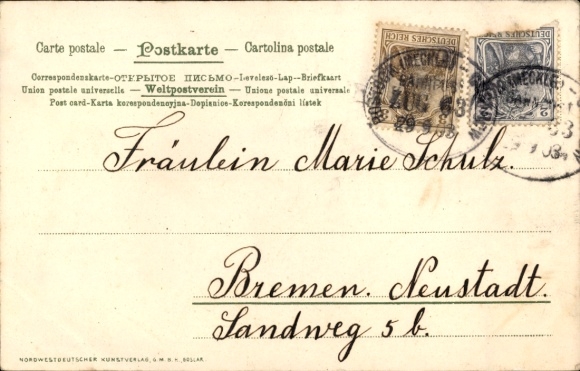 Carte postale — Postkarte — Cartolina postale
Correspondenskarte-ОТКРЫТОЕ ПИСЬМО-Levelező-Lap-Briefkaart
Union postale universelle — Weltpostverein — Unione postale universale
Post card-Karta korespondencyjna-Dopisnice-Korespondenční lístek
DEUTSCHES REICH
DEUTSCHES REICH
(MECKLB)
ZUG
29 3 03
Fräulein Marie Schulz.
Bremen. Neustadt.
Sandweg 5 b.
NORDWESTDEUTSCHER KUNSTVERLAG, G.M.B.H., GOSLAR.